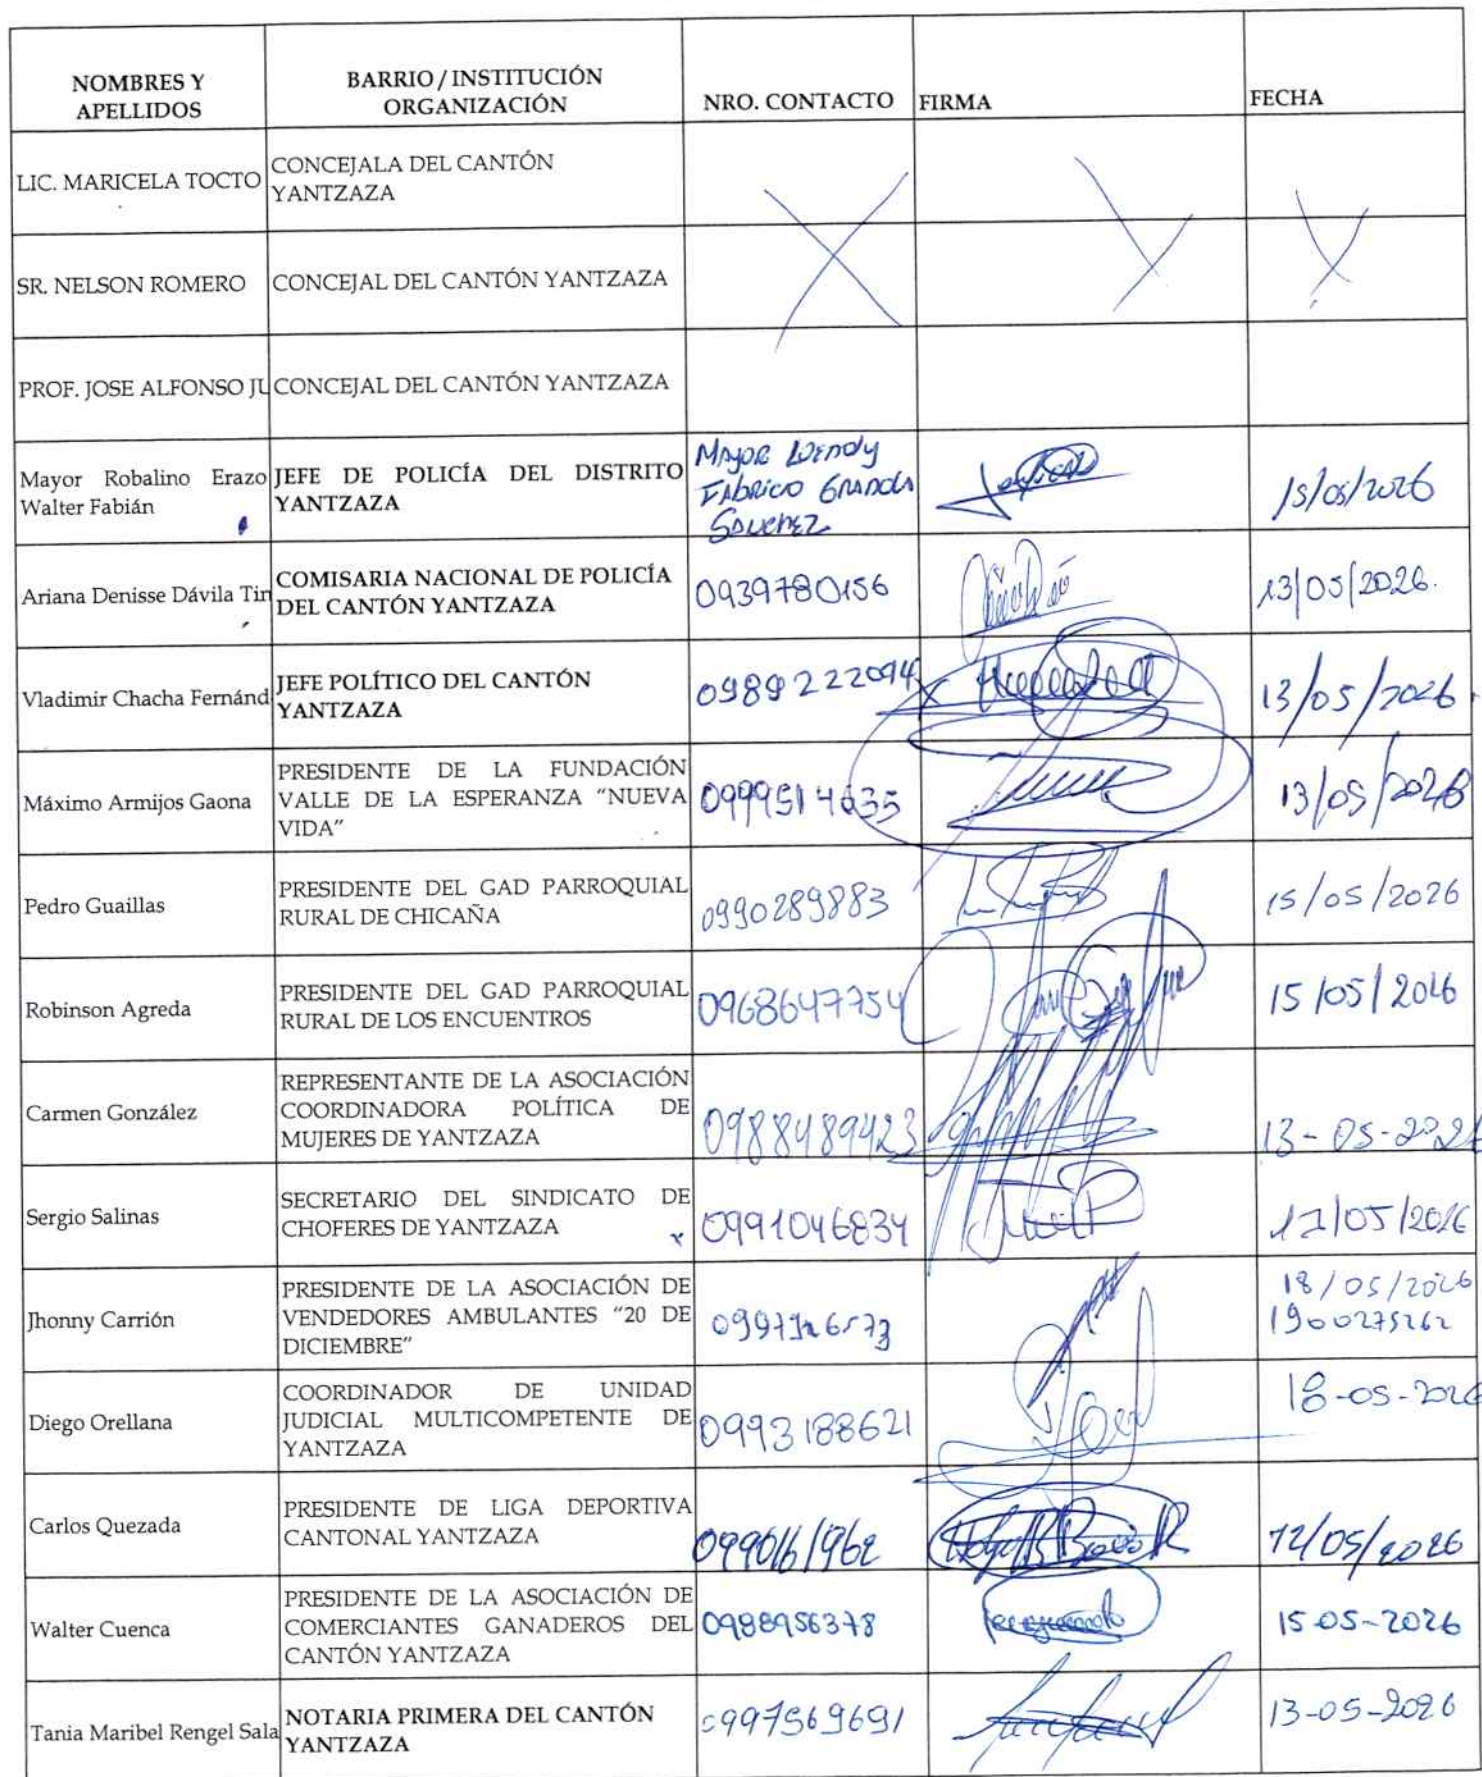 NOMBRES Y
APELLIDOS
BARRIO / INSTITUCIÓN
ORGANIZACIÓN
NRO. CONTACTO
FIRMA
FECHA
LIC. MARICELA TOCTO
CONCEJALA DEL CANTÓN
YANTZAZA
SR. NELSON ROMERO
CONCEJAL DEL CANTÓN YANTZAZA
PROF. JOSE ALFONSO JU
CONCEJAL DEL CANTÓN YANTZAZA
Mayor Robalino Erazo
Walter Fabián
JEFE DE POLICÍA DEL DISTRITO
YANTZAZA
Mayor Wendy
15/05/2026
Ariana Denisse Dávila Tin
COMISARIA NACIONAL DE POLICÍA
DEL CANTÓN YANTZAZA
0939780156
13/05/2026.
Vladimir Chacha Fernánd
JEFE POLÍTICO DEL CANTÓN
YANTZAZA
0989222094
13/05/2026
Máximo Armijos Gaona
PRESIDENTE DE LA FUNDACIÓN
VALLE DE LA ESPERANZA "NUEVA
VIDA"
0999514635
13/05/2026
Pedro Guaillas
PRESIDENTE DEL GAD PARROQUIAL
RURAL DE CHICAÑA
0990289883
15/05/2026
Robinson Agreda
PRESIDENTE DEL GAD PARROQUIAL
RURAL DE LOS ENCUENTROS
0968647754
15/05/2026
Carmen González
REPRESENTANTE DE LA ASOCIACIÓN
COORDINADORA POLÍTICA DE
MUJERES DE YANTZAZA
0988489423
13-05-2026
Sergio Salinas
SECRETARIO DEL SINDICATO DE
CHOFERES DE YANTZAZA
0991046834
Jhonny Carrión
PRESIDENTE DE LA ASOCIACIÓN DE
VENDEDORES AMBULANTES "20 DE
DICIEMBRE"
18/05/2026
1900275262
Diego Orellana
COORDINADOR DE UNIDAD
JUDICIAL MULTICOMPETENTE DE
YANTZAZA
0993188621
18-05-2026
Carlos Quezada
PRESIDENTE DE LIGA DEPORTIVA
CANTONAL YANTZAZA
0990161962
12/05/2026
Walter Cuenca
PRESIDENTE DE LA ASOCIACIÓN DE
COMERCIANTES GANADEROS DEL
CANTÓN YANTZAZA
0988956378
15-05-2026
Tania Maribel Rengel Sala
NOTARIA PRIMERA DEL CANTÓN
YANTZAZA
0997569691
13-05-2026